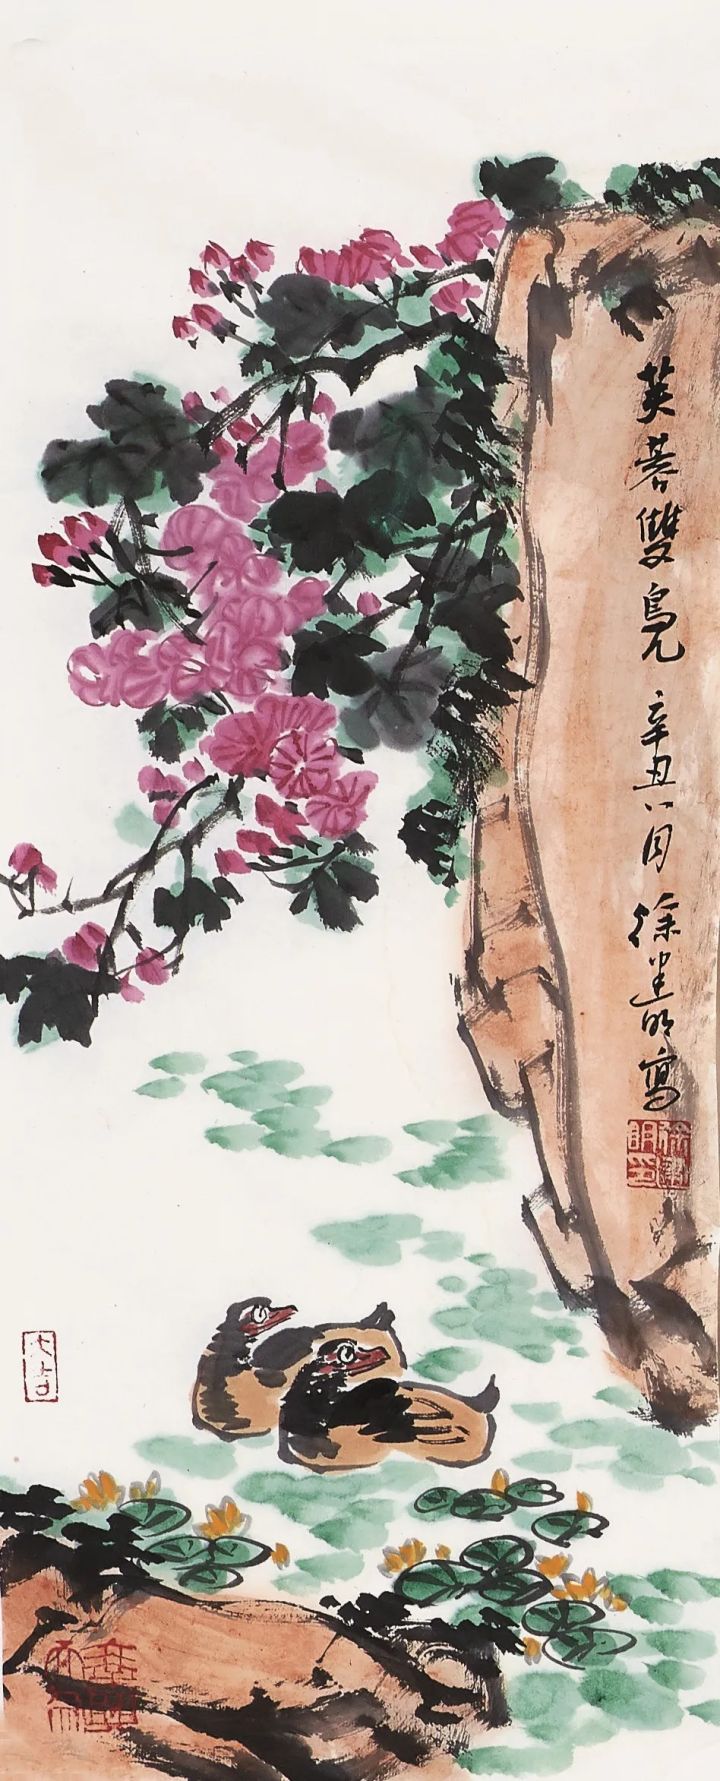 芙蓉雙鳧 辛丑八月 徐建明寫
徐建明印
大吉